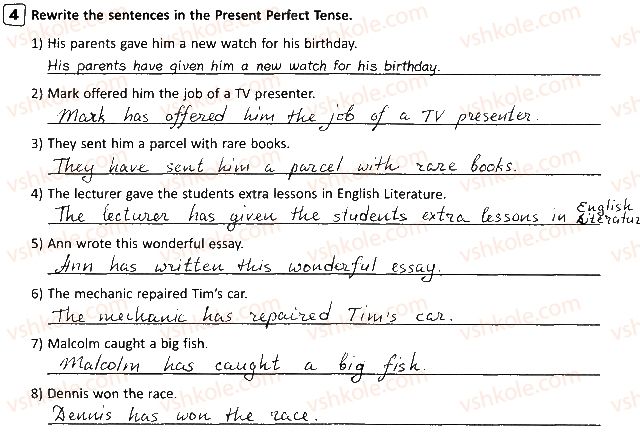 4 Rewrite the sentences in the Present Perfect Tense.
1) His parents gave him a new watch for his birthday.
His parents have given him a new watch for his birthday.
2) Mark offered him the job of a TV presenter.
Mark has offered him the job of a TV presenter.
3) They sent him a parcel with rare books.
They have sent him a parcel with rare books.
4) The lecturer gave the students extra lessons in English Literature.
The lecturer has given the students extra lessons in English
Literatur
5) Ann wrote this wonderful essay.
Ann has written this wonderful essay.
6) The mechanic repaired Tim's car.
The mechanic has repaired Tim's car.
7) Malcolm caught a big fish.
Malcolm has caught a big fish.
8) Dennis won the race.
Dennis has won the race.
vshkole.com